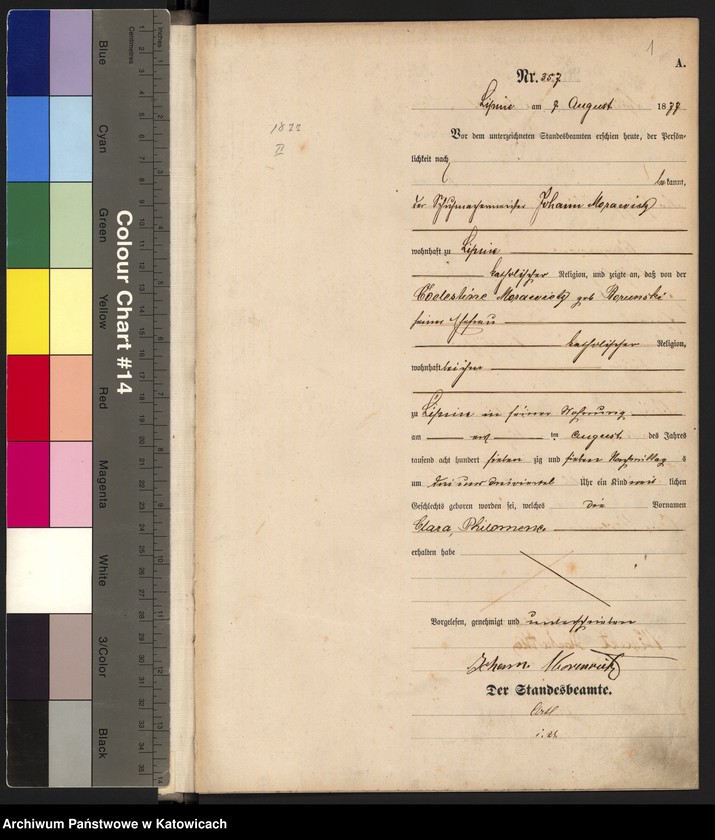 1
A.
Nr. 357
Lipine am 7 August 1877
1877
II
Vor dem unterzeichneten Standesbeamten erschien heute, der Persön-
lichkeit nach
bekannt,
der Schuhmachermeister Johann Morawietz
wohnhaft zu Lipine
katholischer Religion, und zeigte an, daß von der
Coelestine Morawietz geb
seiner Ehefrau
katholischer Religion,
wohnhaft bei ihm
zu Lipine in seiner Wohnung
am ten August des Jahres
tausend acht hundert sieben zig und sieben Nachmittag s
um drei und dreiviertel Uhr ein Kind weib lichen
Geschlechts geboren worden sei, welches die Vornamen
Clara, Philomene
erhalten habe
Vorgelesen, genehmigt und unterschrieben
Johann Morawietz
Der Standesbeamte.
Colour Chart #14
Blue
Cyan
Green
Yellow
Red
Magenta
White
3/Color
Black
Centimetres
Inches
Archiwum Państwowe w Katowicach